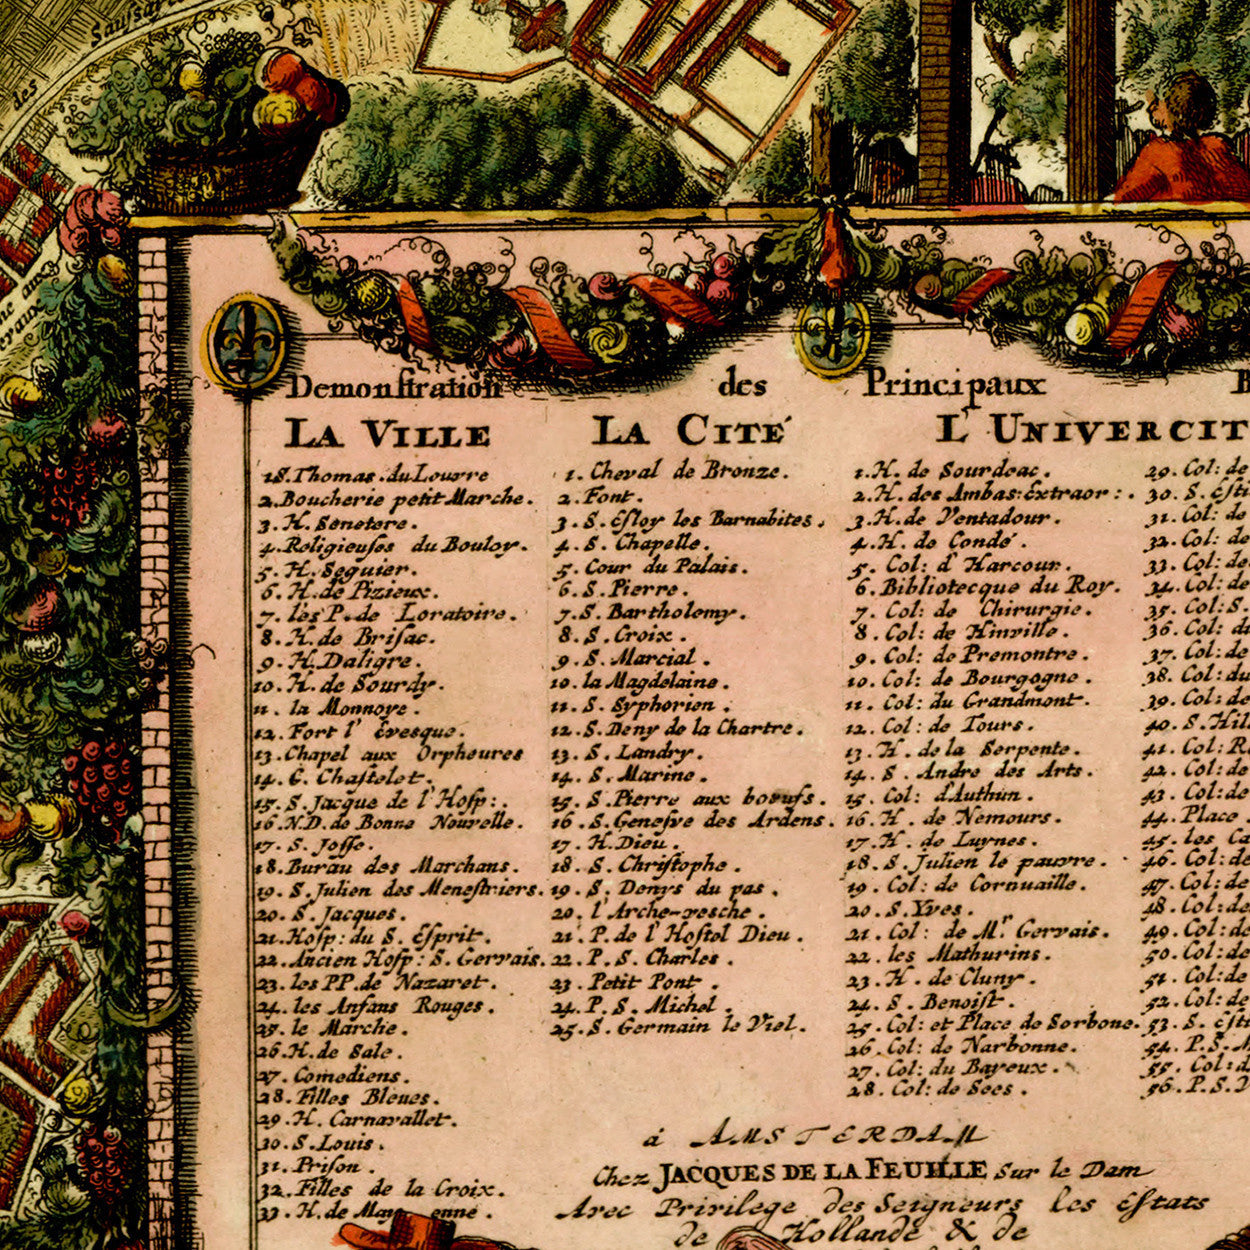 des Saussaye
des
Demonstration des Principaux
LA VILLE
1.S.Thomas.du Louvre
2.Boucherie petit Marche.
3.H.Senetere.
4.Religieuses du Bouloy.
5.H.Seguier.
6.H.de Pizieux.
7.les P.de Loratoire.
8.H.de Brisac.
9.H.Daligre.
10.H.de Sourdy.
11.la Monnoye.
12.Fort l' Evesque.
13.Chapel aux Orpheures
14.G.Chastelet.
15.S.Jacque de l'Hosp:.
16.N.D.de Bonne Nouvelle.
17.S.Josse.
18.Burau des Marchans.
19.S.Julien des Menestriers.
20.S.Jacques.
21.Hosp:du S.Esprit.
22.Ancien Hosp:S.Gervais.
23.les PP.de Nazaret.
24.les Anfans Rouges.
25.le Marche.
26.H.de Sale.
27.Comediens.
28.Filles Bleues.
29.H.Carnavallet.
30.S.Louis.
31.Prison.
32.Filles de la Croix.
33.H.de May enne.
LA CITÉ
1.Cheval de Bronze.
2.Font.
3.S.Esloy les Barnabites.
4.S.Chapelle.
5.Cour du Palais.
6.S.Pierre.
7.S.Bartholemy.
8.S.Croix.
9.S.Marcial.
10.la Magdelaine.
11.S.Syphorien.
12.S.Deny de la Chartre.
13.S.Landry.
14.S.Marine.
15.S.Pierre aux boeufs.
16.S.Genefve des Ardens.
17.H.Dieu.
18.S.Christophe.
19.S.Denys du pas.
20.l'Arche-vesche.
21.P.de l'Hostol Dieu.
22.P.S.Charles.
23.Petit Pont.
24.P.S.Michel.
25.S.Germain le Viel.
L' UNIVERCIT
1.H.de Sourdeac.
2.H.des Ambas:Extraor:.
3.H.de Ventadour.
4.H.de Condé.
5.Col:d'Harcour.
6.Bibliotecque du Roy.
7.Col:de Chirurgie.
8.Col:de Hinville.
9.Col:de Premontre.
10.Col:de Bourgogne.
11.Col:du Grandmont.
12.Col:de Tours.
13.H.de la Serpente.
14.S.Andre des Arts.
15.Col:d'Authun.
16.H.de Nemours.
17.H.de Luynes.
18.S.Julien le pauvre.
19.Col:de Cornuaille.
20.S.Yves.
21.Col:de Mr.Gervais.
22.les Mathurins.
23.H.de Cluny.
24.S.Benoist.
25.Col:et Place de Sorbone.
26.Col:de Narbonne.
27.Col:du Bayeux.
28.Col:de Sees.
29.Col:de
30.S.Esti
31.Col:de
32.Col:de
33.Col:de
34.Col:de
35.Col:S.
36.Col:da
37.Col:de
38.Col:du
39.Col:de
40.S.Hil
41.Col:R
42.Col:de
43.Col:de
44.Place
45.les Ca
46.Col:de
47.Col:de
48.Col:de
49.Col:de
50.Col:de
51.Col:de
52.Col:de
53.S.Esti
54.P.S.
55.Col:d
56.P.S.
á AMSTERDAM
Chez JACQUES DE LA FEUILLE Sur le Dam
Avec Privilege des Seigneurs les Estats
de Hollande & de